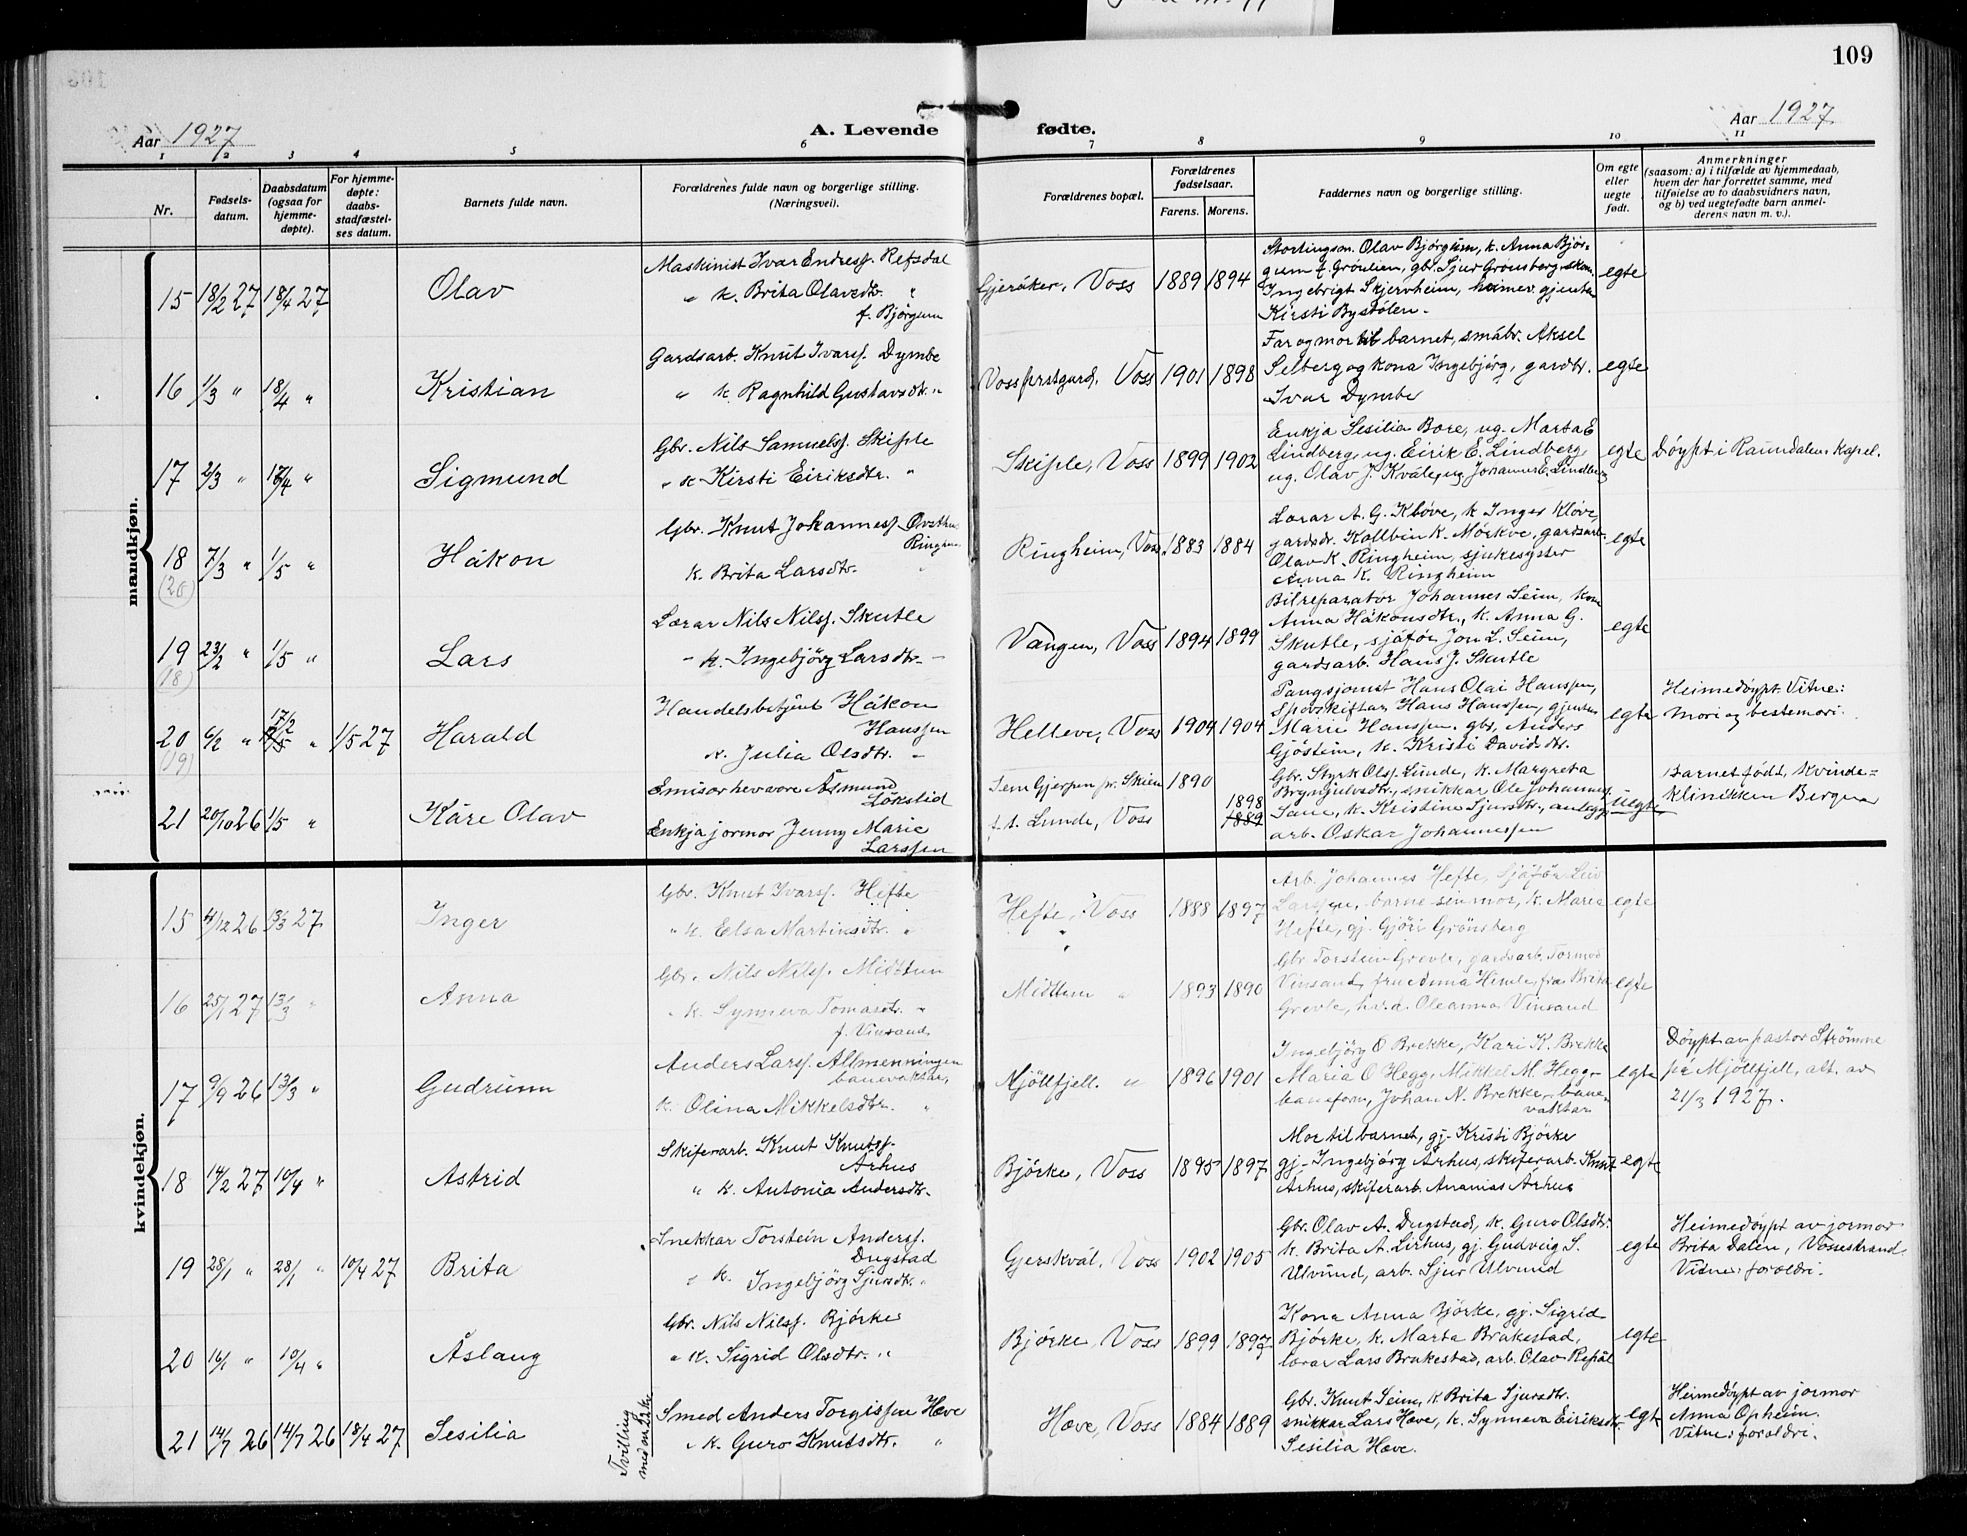 109
Aar 1927
A. Levende
fødte.
Aar 1927
1 2 3 4 5 6 7 8 9 10 11
Nr.
Fødsels-
datum.
Daabsdatum
(ogsaa for
hjemme-
døpte).
For hjemme-
døpte:
daabs-
stadfæstel-
ses datum.
Barnets fulde navn.
Forældrenes fulde navn og borgerlige stilling.
(Næringsvei).
Forældrenes bopæl.
Forældrenes
fødselsaar.
Farens. Morens.
Faddernes navn og borgerlige stilling.
Om egte
eller
uegte
født.
Anmerkninger
(saasom: a) i tilfælde av hjemmedaab,
hvem der har forrettet samme, med
tilføielse av to daabsvidners navn,
og b) ved uegtefødte barn anmel-
derens navn m. v.).
mandkjøn.
15 18/2 27 18/4 27 Olav
Maskinist Ivar Endress. Refsdal
" k. Brita Olavsdtr. "
f. Bjørgum
Gjeråker, Voss 1889 1894
Stortingsm. Olav Bjørgum, k. Anna Bjør-
gum f. Grönlien, gbr. Sjur Grønsberg, skom.
Ingebrigt Skjervheim, heimev. gjenta
Kirsti Bystølen.
egte
16 1/3 " 18/4 " Kristian
Gardsarb. Knut Ivarss. Dymbe
" k. Ragnhild Gustavsdtr. "
Vossprstgard, Voss 1901 1898
Far og mor til barnet, småbr. Aksel
Selberg og kona Ingebjørg, gardbr.
Ivar Dymbe
egte
17 2/3 " 18/4 " Sigmund
Gbr. Nils Samuelss. Skiple
" k. Kirsti Eiriksdtr. "
Skiple, Voss 1899 1902
Enkja Sesilia Bore, ug. Marta E
Lindberg, ug. Eirik E. Lindberg,
ug. Olav J. Kvåle, ug Johannes E. Lindberg
egte
Døypt i Raundalen kapel.
18 (20) 7/3 " 1/5 " Håkon
Gbr. Knut Johanness. Øvsthus
Ringheim
k. Brita Larsdtr.
Ringheim, Voss. 1883 1884
Lærar A. G. Kløve, k Inger Kløve,
gardsdr. Kolbein K. Mørkve, gardsarb.
Olav K. Ringheim, sjukesyster
Anna K. Ringheim
egte
19 (18) 23/2 " 1/5 " Lars
Lærar Nils Nilss. Skutle
- k. Ingebjörg Larsdtr. -
Vangen, Voss 1894 1899
Bilreparatør Johannes Seim, kona
Anna Håkonsdtr., k. Anna G.
Skutle, sjåfør Jon L. Seim,
gardsarb. Hans J. Skutle
egte
20 (19) 6/2 " 17/2 " 1/5 27 Harald
Handelsbetjent Håkon
Hanssen
k. Julia Olsdtr. -
Helleve, Voss 1904 1904
Pangsjonist Hans Olai Hanssen,
Sporskiftar Hans Hanssen, gjenta
Marie Hanssen, gbr. Anders
Gjøstein, k. Kristi Davidsdtr.
egte
Heimedøypt. Vitne:
Mori og bestemori.
21 20/10 26 1/5 " Kåre Olav
Emisær hevvore Åsmund
Løkslid
Enkja jormor Jenny Marie
Larssen
Sem Gjerpen pr. Skien 1890
f. t. Lunde, Voss 1898
1889
Gbr. Styrk Olss. Lunde, k. Margreta
Brynjulvsdtr., snikkar Ole Johannes
Sane, k. Kristine Sjursdtr., anlegg-
arb. Oskar Johannessen
uegte
Barnet født, Kvinde-
klinikken Bergen
kvindekjøn.
15 4/12 26 13/3 27 Inger
Gbr. Knut Ivarss. Hefte
" k. Elsa Martinsdtr. "
Hefte, Voss 1888 1897
Arb. Johannes Hefte, sjåfør Leiv
Larssen, barne sin mor, k. Maria
Hefte, gj. Gjöri Grønsberg
egte
16 25/1 27 13/3 " Anna
Gbr. Nils Nilss. Midttun
" k. Synneva Tomasdtr. "
f. Vinsand
Midttun " 1893 1890
Gbr. Torstein Grevle, gardsarb. Tormod
Vinsand, fru Anna Himle, frø. Brita
Grevle, Oleanna Vinsand
egte
17 9/9 26 13/3 " Gudrunn
Anders Larss. Allmenningen
banevaktar,
k. Olina Mikkelsdtr. "
Mjölfjell. " 1896 1901
Ingebjörg O Brekke, Kari K. Brekke
Maria O Hegg, Mikkel M. Hegg,
baneform, Johan N. Brekke, bane-
vaktar
egte
Døypt av pastor Strømme
på Mjölfjell, alt. av
21/3 1927.
18 14/2 27 10/4 " Astrid
Skiferarb. Knut Knutss.
Århus
" k. Antonia Andersdtr.
Björke, Voss 1895 1897
Mor til barnet, gj. Kristi Björke
gj. Ingebjörg Århus, skiferarb. Knut
Århus, skiferarb. Ananias Århus
egte
19 28/1 " 28/1 " 10/4 27 Brita
Snekkar Torstein Anderss.
Dugstad
" k. Ingebjörg Sjursdtr. "
Gjerskvål, Voss 1902 1905
Gbr. Olav A. Dugstad, k. Guro Olsdtr.
k. Brita A. Lirhus, gj. Gudveig S.
Ulvund, arb. Sjur Ulvund
egte
Heimedøypt av jormor
Brita Dalen, Vossestrand
Vitne: foreldri.
20 16/1 " 10/4 " Åslaug
Gbr. Nils Nilss. Björke
" k. Sigrid Olsdtr. "
Björke, Voss 1899 1897
Kona Anna Björke, gj. Sigrid
Björke, k. Marta Brakestad,
lærar Lars Brakestad, arb. Olav Repål
egte
21 14/7 26 14/7 26 18/4 27 Sesilia
Tvilling
med nr. 22 kv.
Smed Anders Torgissen Hæve
" k. Guro Knutsdtr. "
Hæve, Voss 1884 1889
Gbr. Knut Seim, k. Brita Sjursdtr.
snikkar Lars Hæve, k. Synneva Eiriksdtr.
Sesilia Hæve.
egte
Heimedøypt av jormor
Anna Opheim.
Vitne: foreldri.